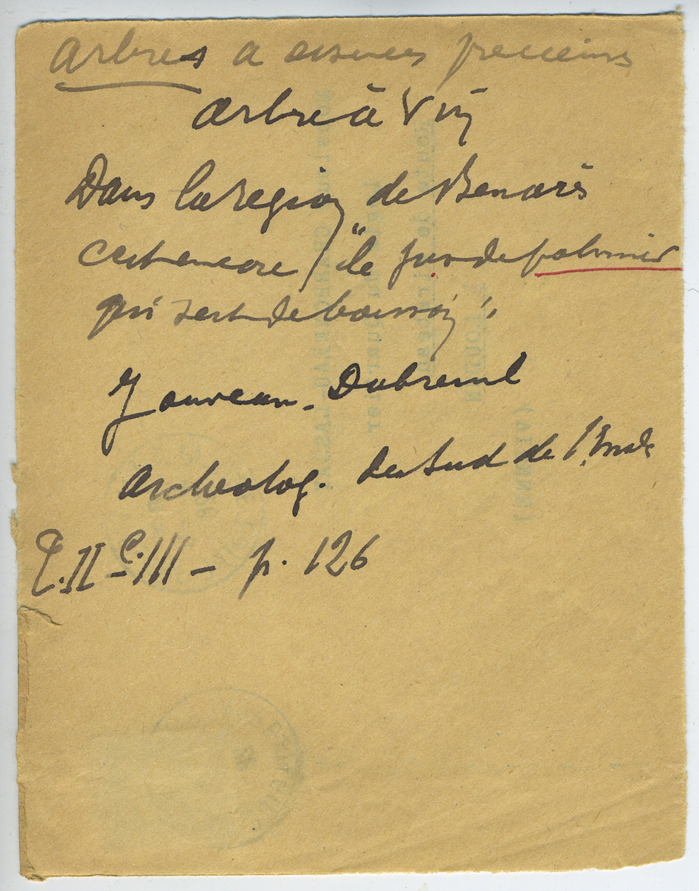 arbres a essences precieuses
arbre à vin
Dans la region de Benarès
c'est encore "le jus de palmier
qui sert de boisson".
Jouveau-Dubreuil
Archeolog. du Sud de l'Inde
T. II C. III - p. 126